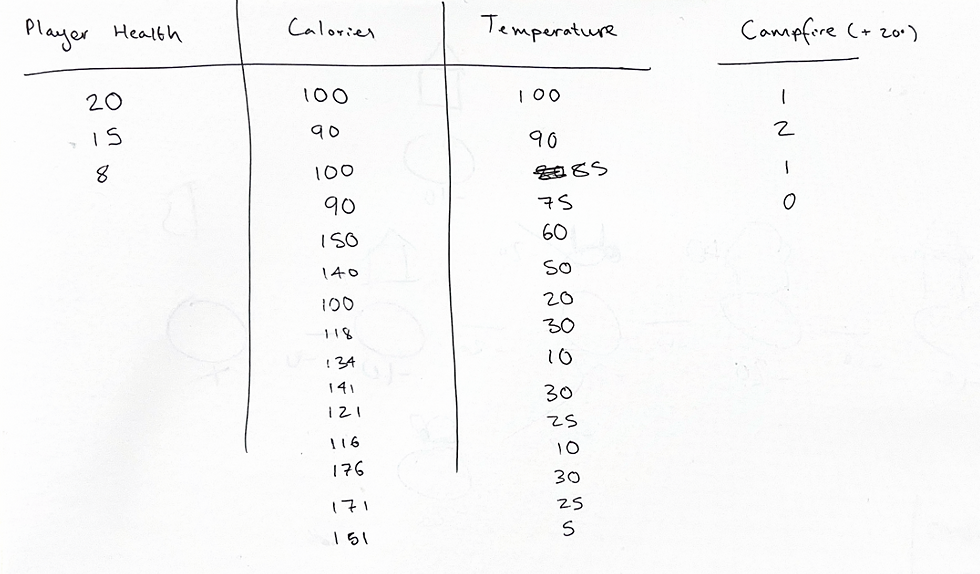 Player Health Calories Temperature Campfire (+ 20°)
20 100 100 1
15 90 90 2
8 100 85 1
90 75 0
150 60
140 50
100 20
118 30
134 10
141 30
121 25
116 10
176 30
171 25
151 5